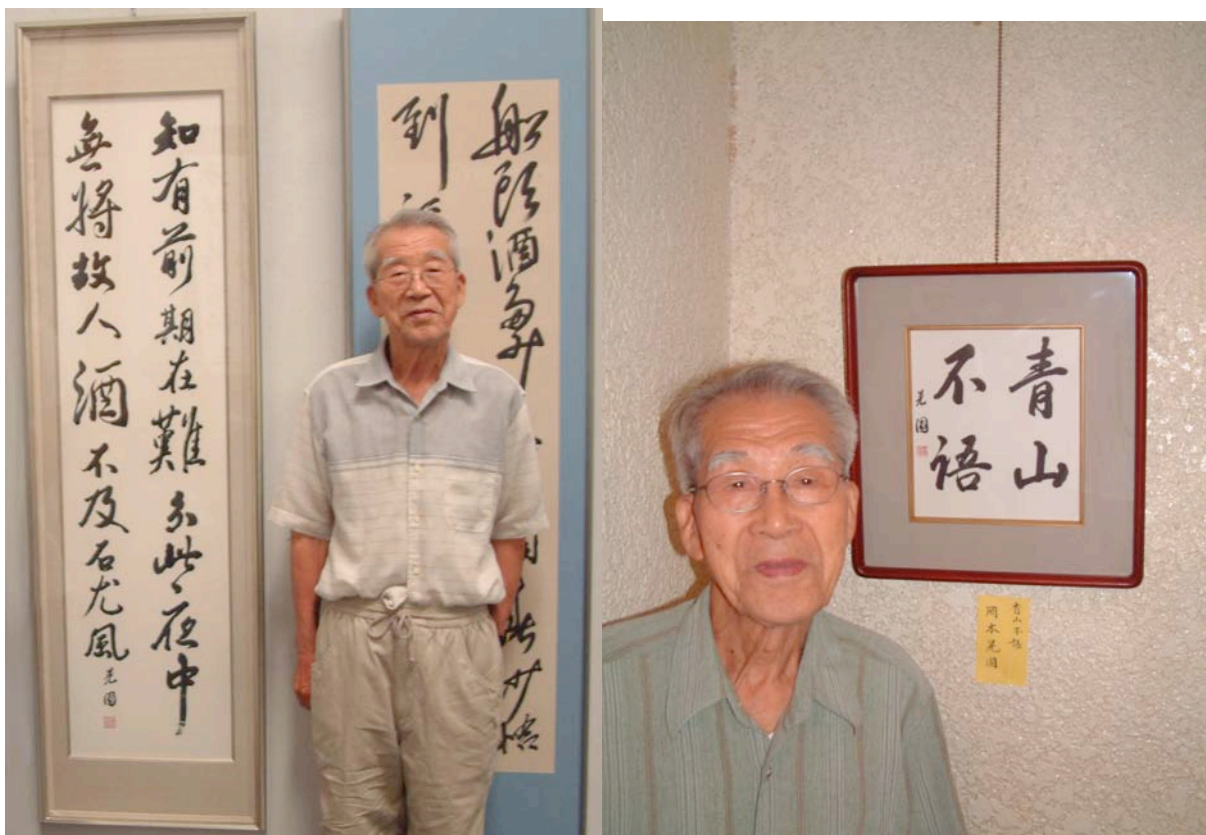 知有前期在難分此夜中
無將故人酒不及石尤風
晃園
船頭酒
到
青山
不語
晃園
青山不語
岡本晃園